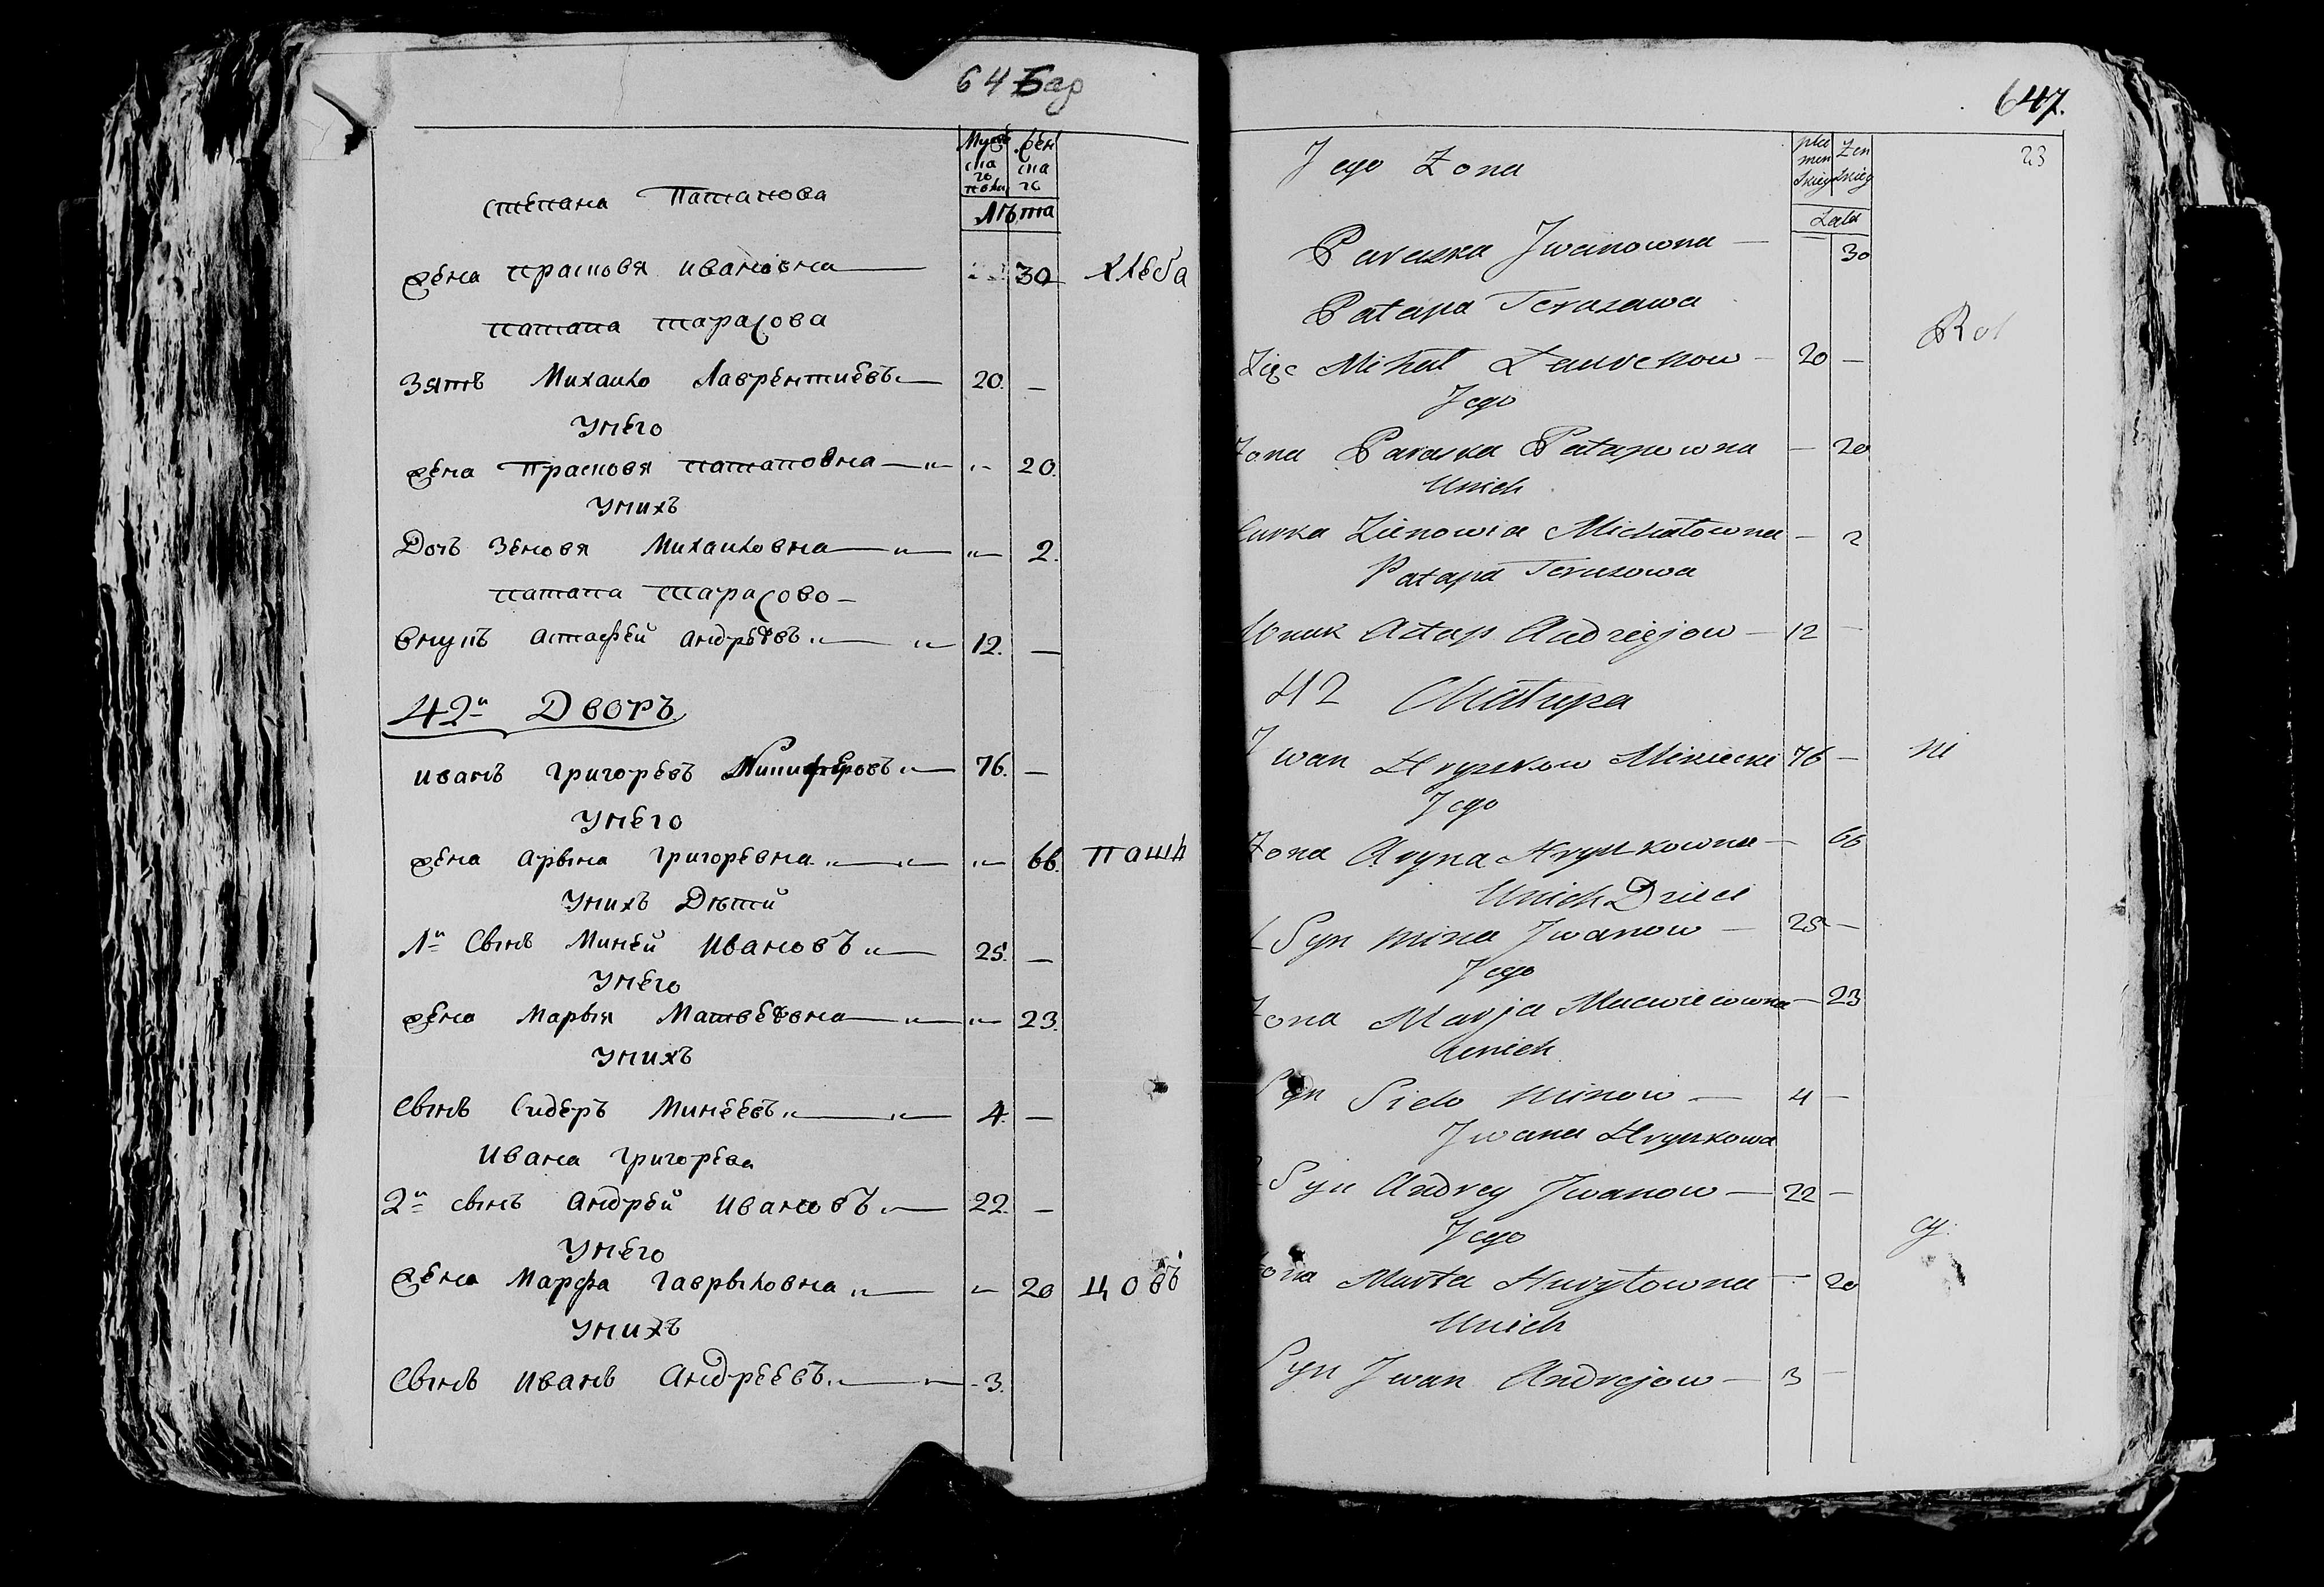 646ар
Мужескаго пола
Женскаго
Лѣта
степана Патапова
жена прасковя ивановна 30 хлеба
патапа тарасова
Зятъ Михаило Лаврентиевъ 20. —
У него
жена Прасковя патаповна " 20.
У нихъ
Дочъ Зеновя Михаиловна " 2.
патапа тарасово
внукъ астафей андреевъ 12. —
42й Дворъ
иванъ григоревъ Никифоровъ 76. —
У него
жена арына григоревна " 66. паши
У нихъ Дѣти
1й Сынъ Миней Ивановъ 25. —
У него
жена Марыя Матвеевна " 23.
У нихъ
Сынъ Сидеръ Минеевъ 4. —
Ивана григорева
2й сынъ андрей ивановъ 22. —
У него
жена Марфа гаврыловна " 20 цовъ
У нихъ
Сынъ иванъ Андреевъ 3.
647.
23
Jego Zona
Zenskieg
Lata
Paraska Jwanowna — 30
Patapa Terasawa
Rol
Zięc Mihał Laurenow — 20 —
Jego
Zona Paraska Patapowna — 20
Unich
Curka Zienowia Michałowna — 2
Patapa Terasowa
Wnuk Astap Andrejow — 12 —
42 Chałupa
Jwan Hryszkow Mikicki 76 — ni
Jego
Zona Aryna Hryszkowna — 66
Unich Dzieci
1 Syn Mina Jwanow — 25 —
Jego
Zona Marja Maciejowna — 23
Unich
Syn Sido Minow — 4 —
Jwana Hryszkowa
2 Syn Andrey Jwanow — 22 —
Jego cy.
Zona Marta Hawryłowna — 20
Unich
Syn Jwan Andrejow — 3 —